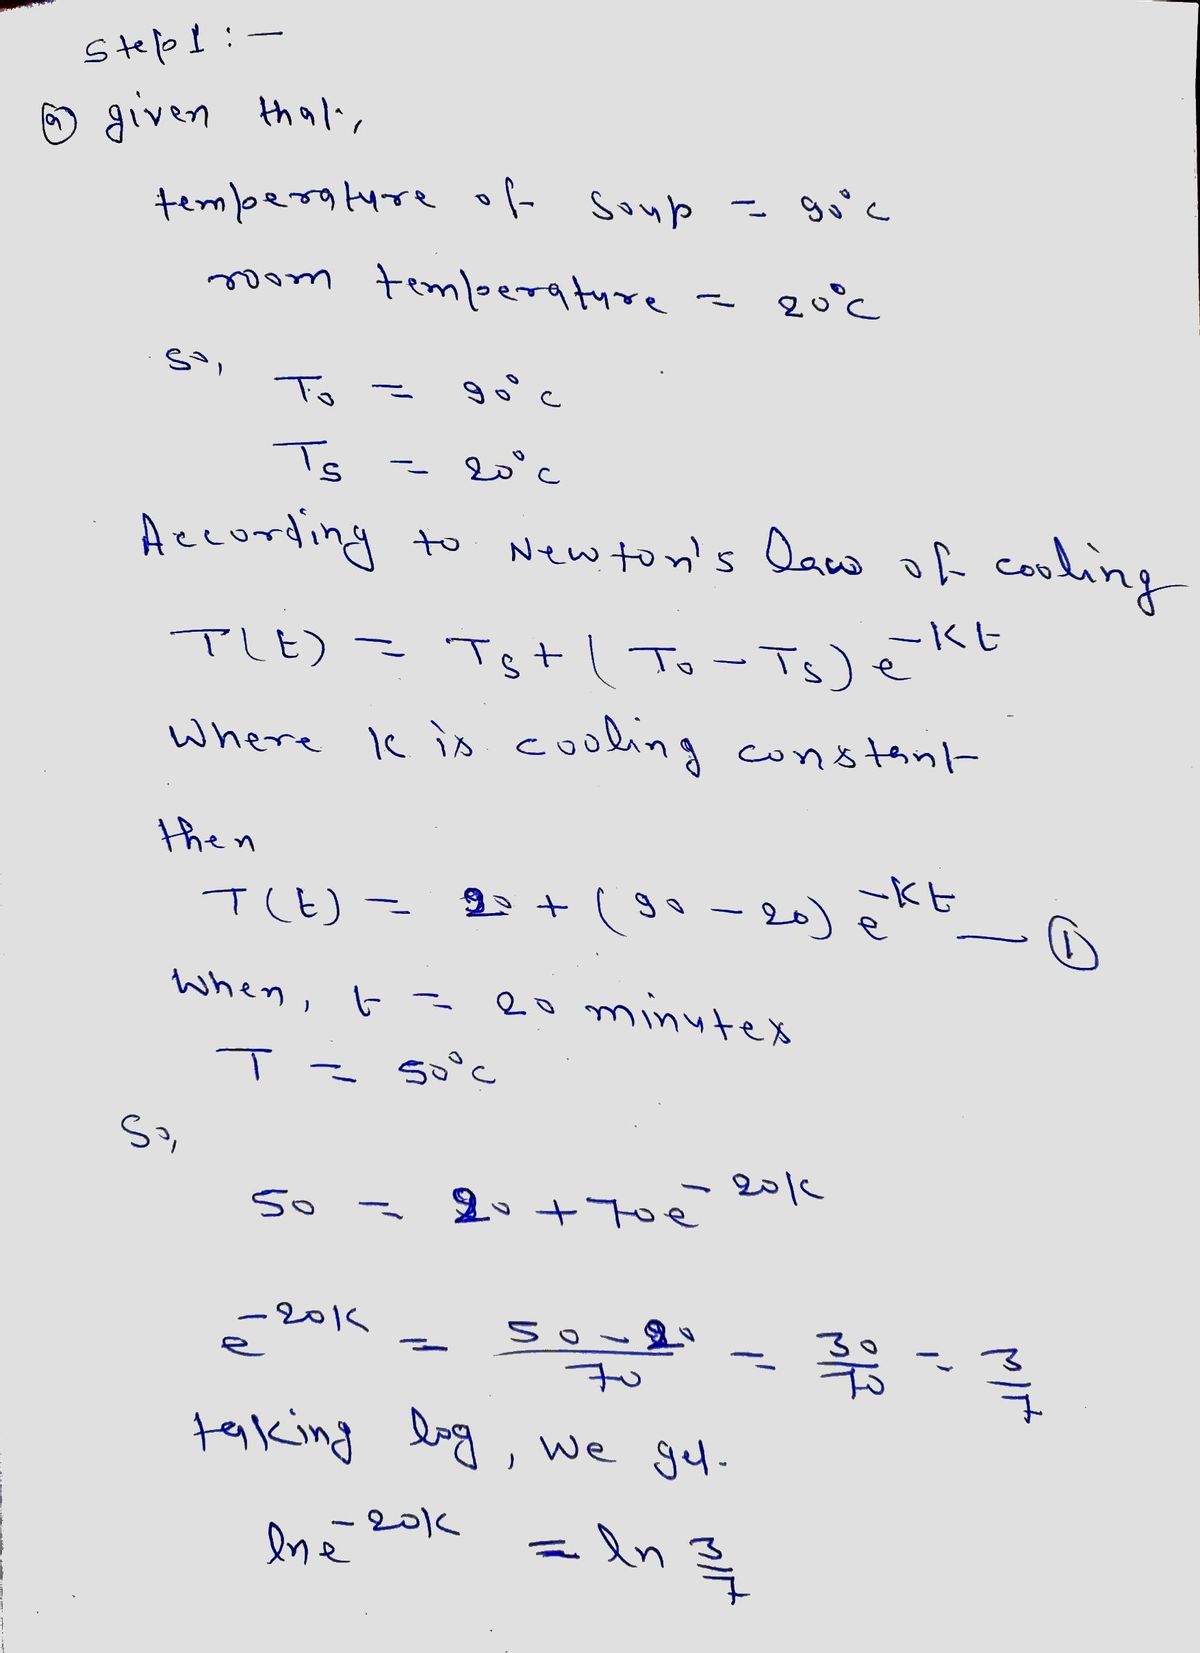 Step 1 :-
(a) given that,
temperature of soup = 90°c
room temperature = 20°c
so,
T₀ = 90°c
Ts = 20°c
According to Newton's law of cooling
T(t) = Ts + (T₀ - Ts) e^-Kt
where K is cooling constant
then
T(t) = 20 + (90 - 20) e^-Kt — ①
when, t = 20 minutes
T = 50°c
So,
50 = 20 + 70e^-20K
e^-20K = (50-20)/70 = 30/70 = 3/7
taking log, we get.
ln e^-20K = ln 3/7